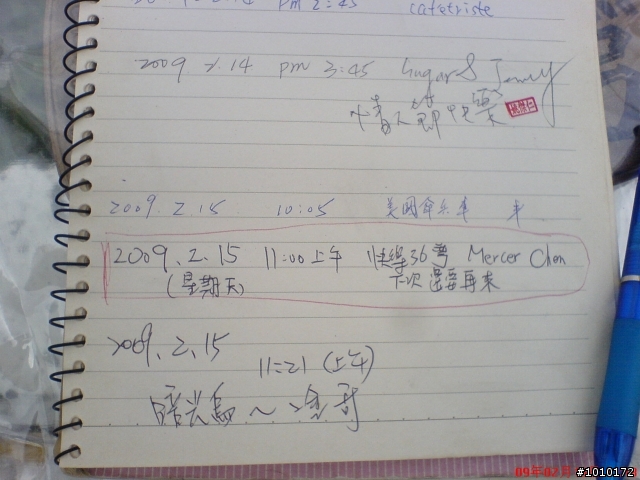 pm 2:45 cafetriste
2009 2.14 pm 3:45 Sugar & Jenny
情人節快樂
2009. 2.15 10:05 美國傘兵
2009. 2. 15 11:00 上午 快樂36彎 Mercer Chen
(星期天) 下次還要再來
2009. 2. 15
11:21 (上午)
暗光鳥~
09年02月
#1010172